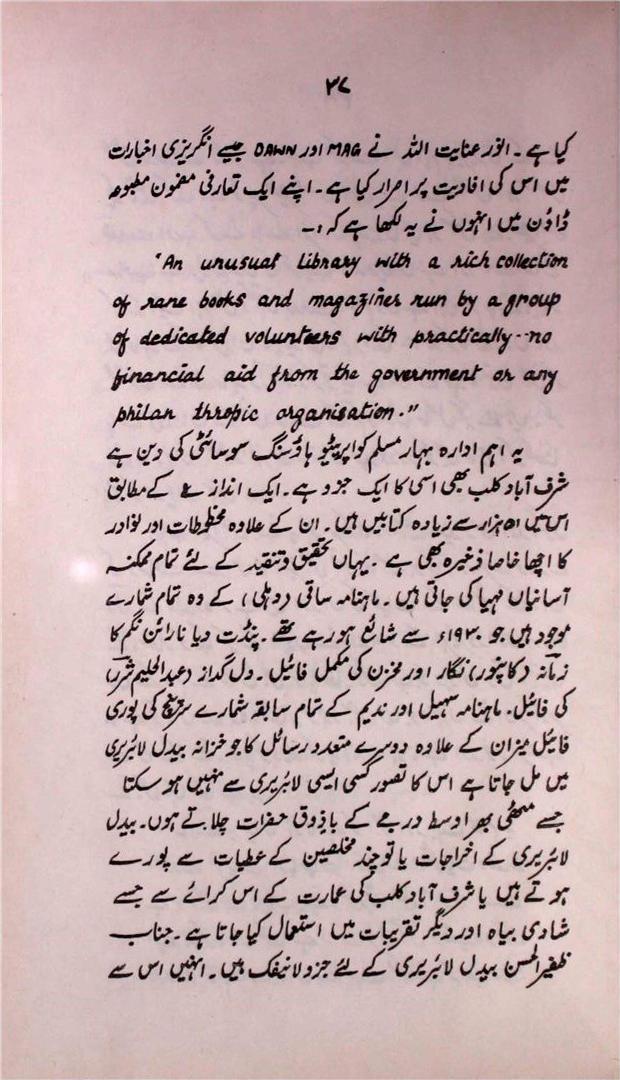 ۳۷
کیا ہے ۔ انور عنایت اللہ نے MAG اور DAWN جیسے انگریزی اخبارات
میں اس کی افادیت پر اصرار کیا ہے ۔ اپنے ایک تعارفی مضمون مطبوعہ
ڈاؤن میں انہوں نے یہ لکھا ہے کہ :۔
‘An unusual library with a rich collection
of rare books and magazines run by a group
of dedicated volunteers with practically--no
financial aid from the government or any
philan thropic organisation.”
یہ اہم ادارہ بہار مسلم کواپریٹیو ہاؤسنگ سوسائٹی کی دین ہے
شرف آباد کلب بھی اسی کا ایک جزو ہے ۔ ایک اندازے کے مطابق
اس میں ۵۱ ہزار سے زیادہ کتابیں ہیں ۔ ان کے علاوہ مخطوطات اور نوادر
کا اچھا خاصا ذخیرہ بھی ہے ۔ یہاں تحقیق و تنقید کے لئے تمام ممکنہ
آسانیاں مہیا کی جاتی ہیں ۔ ماہنامہ ساقی (دہلی) کے وہ تمام شمارے
موجود ہیں جو ۱۹۳۰ء سے شائع ہو رہے تھے ۔ پنڈت دیا نارائن نگم کا
زمانہ (کانپور) نگار اور مخزن کی مکمل فائیل ۔ دل گداز (عبدالحلیم شرر)
کی فائیل ۔ ماہنامہ سہیل اور ندیم کے تمام سابقہ شمارے سرپنچ کی پوری
فائیل میزان کے علاوہ دوسرے متعدد رسائل کا جو خزانہ بیدل لائبریری
میں مل جاتا ہے اس کا تصور کسی ایسی لائبریری سے نہیں ہو سکتا
جسے مٹھی بھر اوسط درجے کے باذوق حضرات چلاتے ہوں ۔ بیدل
لائبریری کے اخراجات یا تو چند مخلصین کے عطیات سے پورے
ہوتے ہیں یا شرف آباد کلب کی عمارت کے اس کرائے سے جسے
شادی بیاہ اور دیگر تقریبات میں استعمال کیا جاتا ہے ۔ جناب
ظفیر الحسن بیدل لائبریری کے لئے جزو لاینفک ہیں ۔ انہیں اس سے